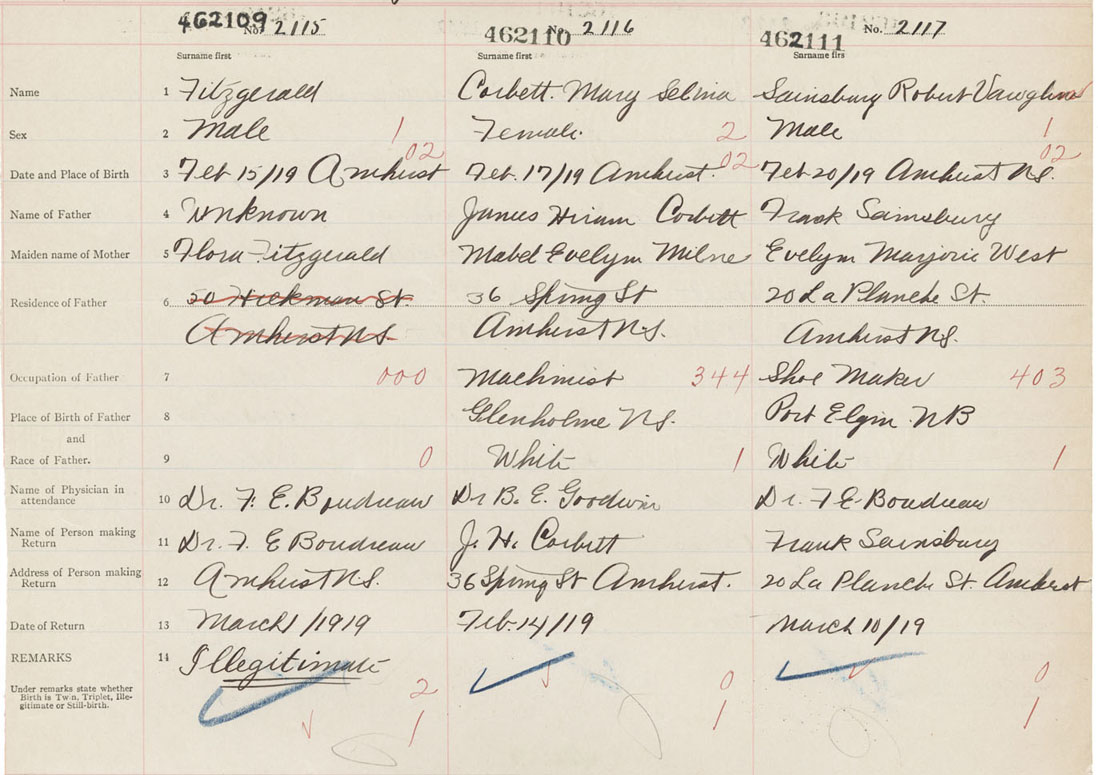 462109 No. 2115 462110 No. 2116 462111 No. 2117
Surname first Surname first Surname firs
Name 1 Fitzgerald Corbett. Mary Selina Sainsbury Robert Vaughn
Sex 2 Male 1 Female. 2 Male 1
02 02 02
Date and Place of Birth 3 Feb 15/19 Amherst Feb. 17/19 Amherst. Feb 20/19 Amherst N.S.
Name of Father 4 Unknown James Hiram Corbett Frask Sainsbury
Maiden name of Mother 5 Flora Fitzgerald Mabel Evelyn Milne Evelyn Marjorie West
Residence of Father 6 30 Hickman St. 36 Spring St 20 La Planche St.
Amherst N.S. Amherst N.S. Amherst N.S.
Occupation of Father 7 000 Machinist 344 Shoe Maker 403
Place of Birth of Father 8 Glenholme N.S. Port Elgin NB
and
Race of Father. 9 0 White 1 White 1
Name of Physician in
attendance 10 Dr. F. E. Boudreau Dr B. E. Goodwin Dr. F E. Boudreau
Name of Person making
Return 11 Dr. F. E Boudreau J. H. Corbett Frank Sainsbury
Address of Person making
Return 12 Amherst N.S. 36 Spring St Amherst. 20 La Planche St. Amherst
Date of Return 13 March 1/1919 Feb. 14/19 March 10/19
REMARKS 14 Illegitimate
Under remarks state whether
Birth is Twin, Triplet, Ille-
gitimate or Still-birth.
2 0 0
1 1 1